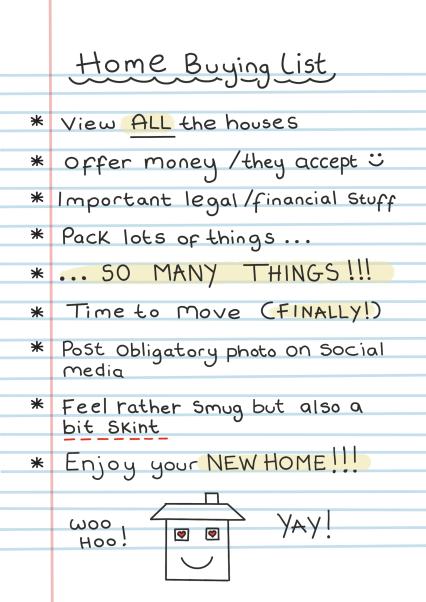 Home Buying List
* View ALL the houses
* Offer money / they accept :)
* Important legal/financial stuff
* Pack lots of things ...
* ... SO MANY THINGS!!!
* Time to move (FINALLY!)
* Post Obligatory photo on Social
media
* Feel rather smug but also a
bit skint
* Enjoy your NEW HOME!!!
WOO
HOO!
YAY!